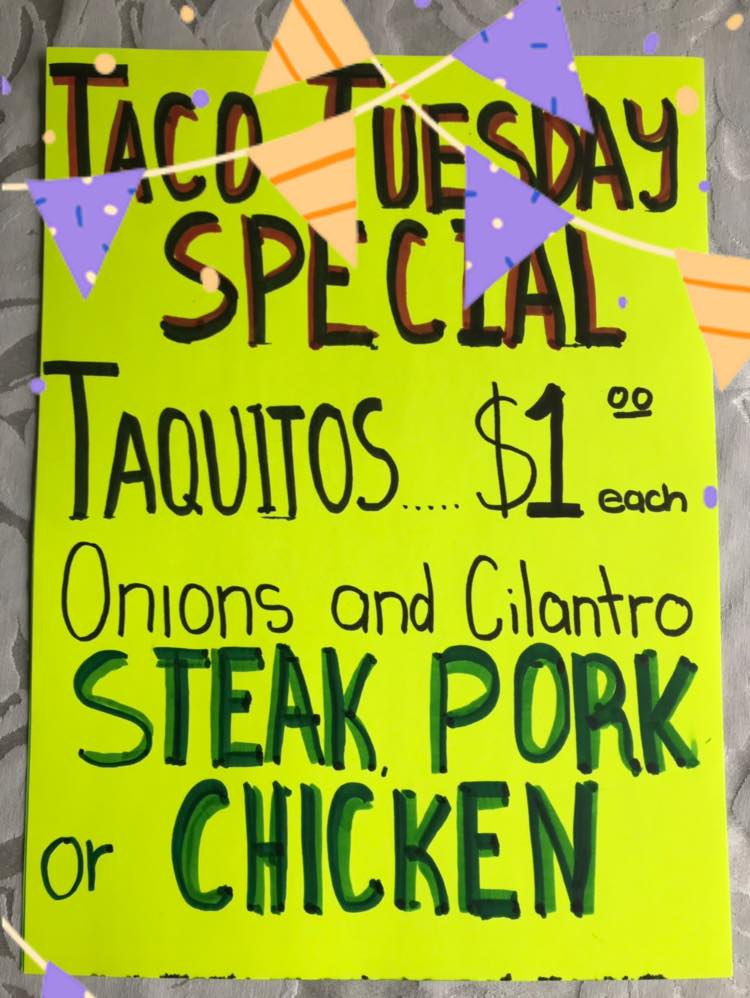 TACO TUESDAY
SPECIAL
TAQUITOS..... $1 00 each
Onions and Cilantro
STEAK, PORK
or CHICKEN